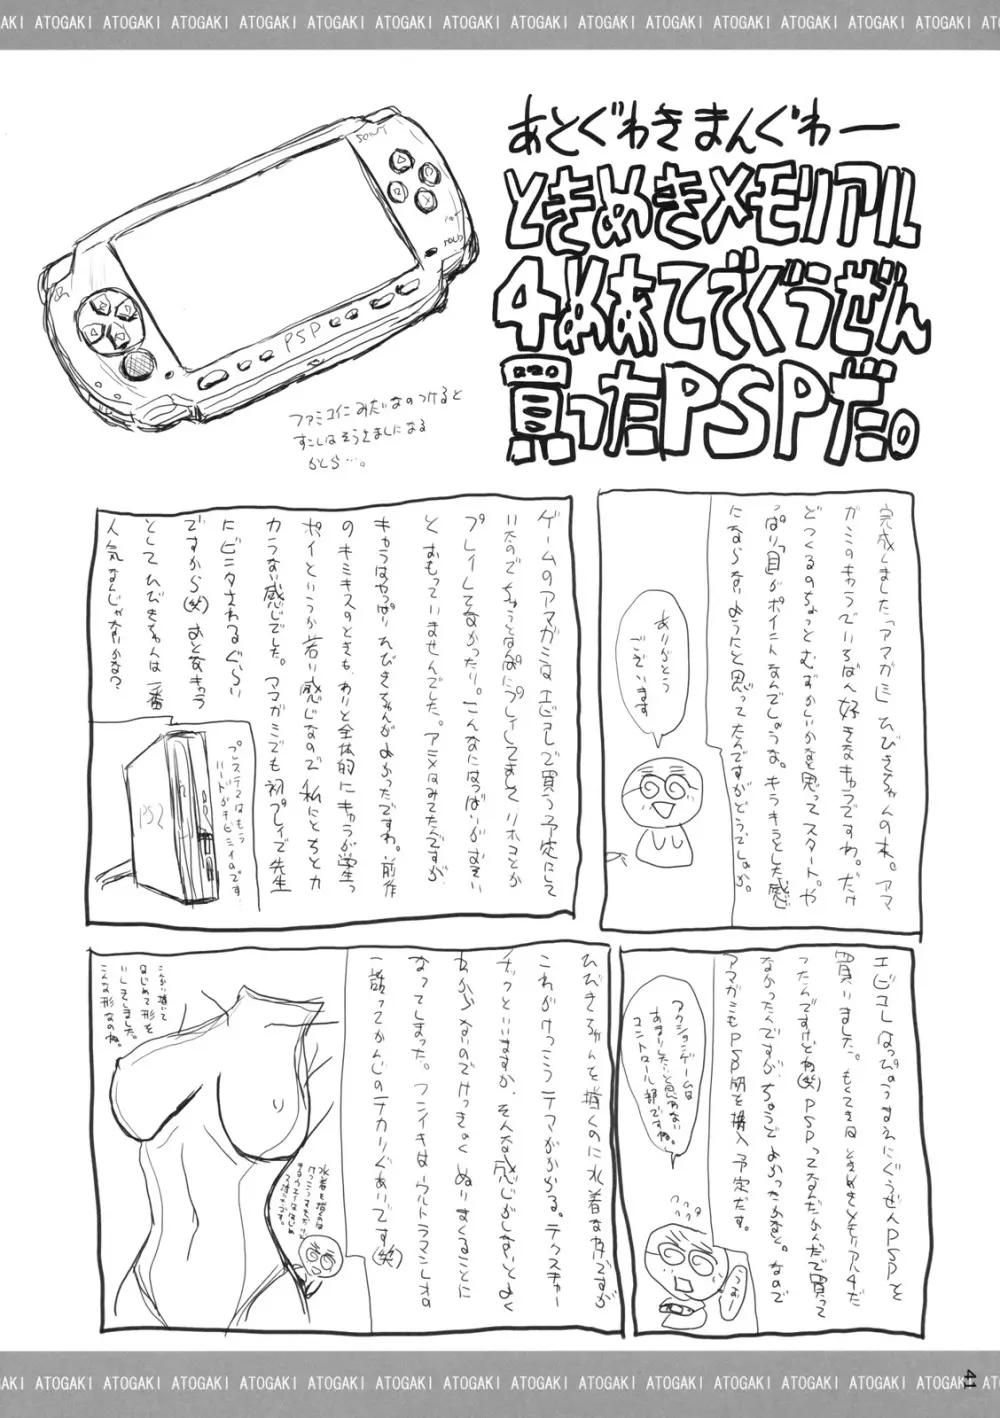 ATOGAKI ATOGAKI ATOGAKI ATOGAKI ATOGAKI ATOGAKI ATOGAKI
あとぐわきまんぐわー
ときめきメモリアル
4めあてでぐうぜん
買ったPSPだ。
SONY
PSP
ファミコンにみたいなのつけると
すこしはそうさましになる
かしら…。
完成しました「アマガミ」ひびきちゃんの本。アマ
ガミのキャラでいちばん好きなキャラですわ。だけ
どつくるのちょっとむずかしいかなと思ってスタート。や
っぱり「目」がポイントなんでしょうな。キラキラとした感
じにならないようにと思ってたんですがどうでしょうか。
ありがとう
ございます
ゲームのアマガミはエビコレで買う予定にして
いたのでちょうどなんぱにプレイしてましてリホコとか
プレイしてなかったり。こんなにはっぱいがおおい
とおもっていませんでした。アニメはみてたんですが
キャラはやっぱりひびきちゃんがよかったですわ。前作
のキミキスのときも、わりと全体的にキャラが学生っ
ポイというか若い感じなので私にとちとカ
カらない感じでした。アマガミでも初プレイで先生
にビンタされるぐらい
ですから(笑)おとなキャラ
としてひびきちゃんは一番
人気なんじゃないかな?
プレステ2はもう
ハードがキビシイのです
PS2
エビコレはっぴょうまえにぐうぜんPSPを
買いました。もくてきはときめきメモリアル4だ
ったんですけどね(笑)PSPってなんだかんだで買って
なかったんですが、ちょうどよかったかな。なので
アマガミもPSP版を購入予定だす。
アクションゲームは
あまりしたいと思わない
コントロール部ですね。
つおー
ひびきちゃんを描くのに水着なわけですが
これがけっこうテマがかかる。テクスチャー
チックといいますか、そんな感じがしないとよく
わからないのでけっきょくぬりまくることに
なってしまった。フンイキはウルトラマンレオの
一部ってかんじのテカリぐあいです(笑)
こんかい描いて
はじめて形を
いしきしました。
こんな形なのね。
41
ATOGAKI ATOGAKI ATOGAKI ATOGAKI ATOGAKI ATOGAKI ATOGAKI